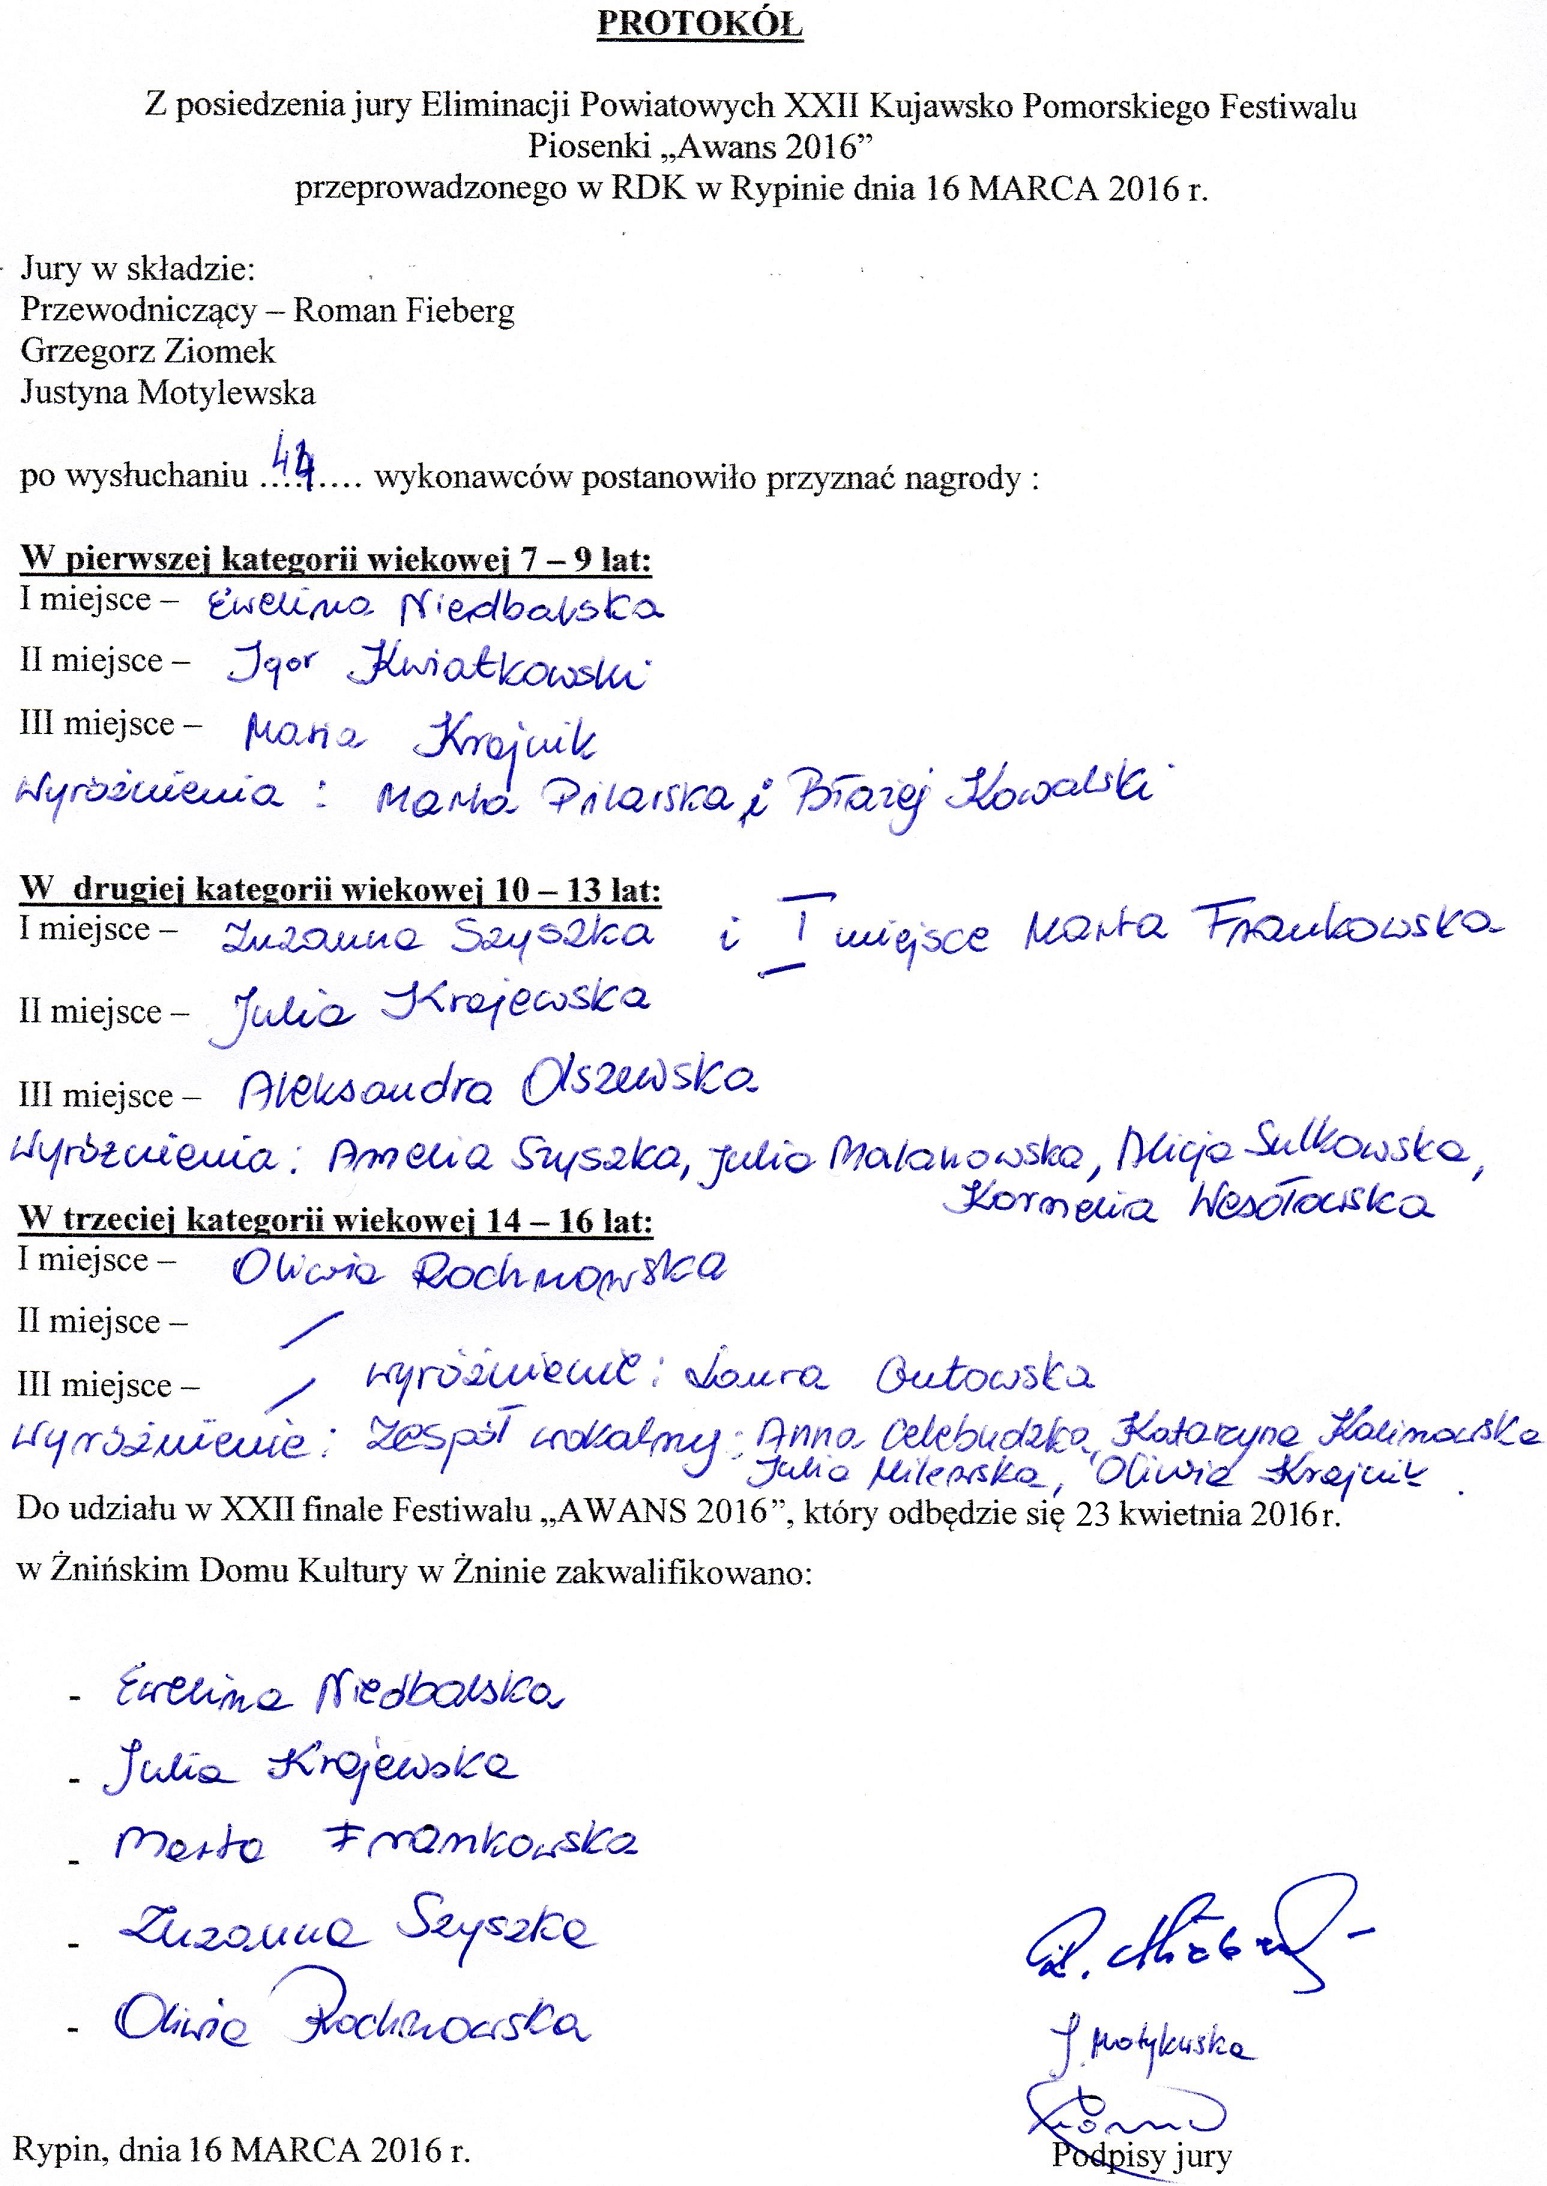 PROTOKÓŁ
Z posiedzenia jury Eliminacji Powiatowych XXII Kujawsko Pomorskiego Festiwalu
Piosenki „Awans 2016”
przeprowadzonego w RDK w Rypinie dnia 16 MARCA 2016 r.
Jury w składzie:
Przewodniczący – Roman Fieberg
Grzegorz Ziomek
Justyna Motylewska
po wysłuchaniu ......... wykonawców postanowiło przyznać nagrody :
W pierwszej kategorii wiekowej 7 – 9 lat:
I miejsce – Ewelina Niedbalska
II miejsce – Igor Kwiatkowski
III miejsce – Maria Krajnik
Wyróżnienia : Marta Pilarska i Błażej Kowalski
W drugiej kategorii wiekowej 10 – 13 lat:
I miejsce – Zuzanna Szyszka i I miejsce Marta Frankowska
II miejsce – Julia Krajewska
III miejsce – Aleksandra Olszewska
Wyróżnienia : Amelia Szyszka, Julia Malanowska, Alicja Sulkowska,
Kornelia Wesołowska
W trzeciej kategorii wiekowej 14 – 16 lat:
I miejsce – Oliwia Rochnowska
II miejsce – /
III miejsce – / wyróżnienie : Laura Gutowska
Wyróżnienie : Zespół wokalny : Anna Celebudzka, Katarzyna Kalinowska
Julia Milewska, Oliwia Krajnik.
Do udziału w XXII finale Festiwalu „AWANS 2016”, który odbędzie się 23 kwietnia 2016 r.
w Żnińskim Domu Kultury w Żninie zakwalifikowano:
- Ewelina Niedbalska
- Julia Krajewska
- Marta Frankowska
- Zuzanna Szyszka
- Oliwia Rochnowska
J. Motylewska
Rypin, dnia 16 MARCA 2016 r.
Podpisy jury